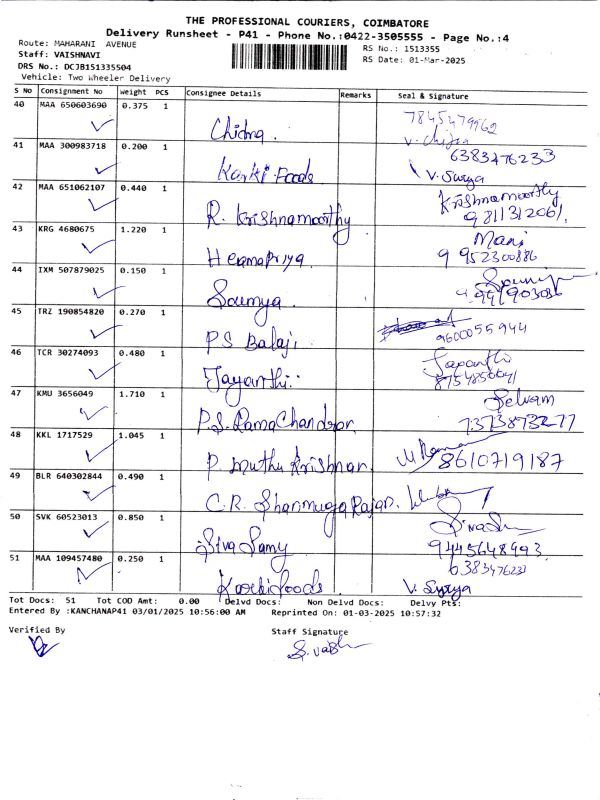 THE PROFESSIONAL COURIERS, COIMBATORE
Delivery Runsheet - P41 - Phone No.:0422-3505555 - Page No.:4
Route: MAHARANI AVENUE
RS No.: 1513355
Staff: VAISHNAVI
RS Date: 01-Mar-2025
DRS No.: DCJB151335504
Vehicle: Two Wheeler Delivery
S No Consignment No Weight PCS Consignee Details Remarks Seal & Signature
40 MAA 650603690 0.375 1 Chitra 7845479962
V. Chitra
41 MAA 300983718 0.200 1 Karki Foods 6383476233
V. Surya
42 MAA 651062107 0.440 1 R. Krishnamoorthy Krishnamoorthy
9811312061.
43 KRG 4680675 1.220 1 Hemapriya Mani
9952300886
44 IXM 507879025 0.150 1 Soumya
45 TRZ 190854820 0.270 1 PS Balaji 9600055944
46 TCR 30274093 0.480 1 Jayanthi Jayanthi
47 KMU 3656049 1.710 1 P.S. RamaChandran Selvam
7373873277
48 KKL 1717529 1.045 1 P. Muthu Krishnan 8610719187
49 BLR 640302844 0.490 1 C.R. Shanmuga Rajan.
50 SVK 60523013 0.850 1 Siva Samy
9445648993
51 MAA 109457480 0.250 1 Karki foods 6383476233
V. Surya
Tot Docs: 51 Tot COD Amt: 0.00 Delvd Docs: Non Delvd Docs: Delvy Pts:
Entered By :KANCHANAP41 03/01/2025 10:56:00 AM Reprinted On: 01-03-2025 10:57:32
Verified By
Staff Signature